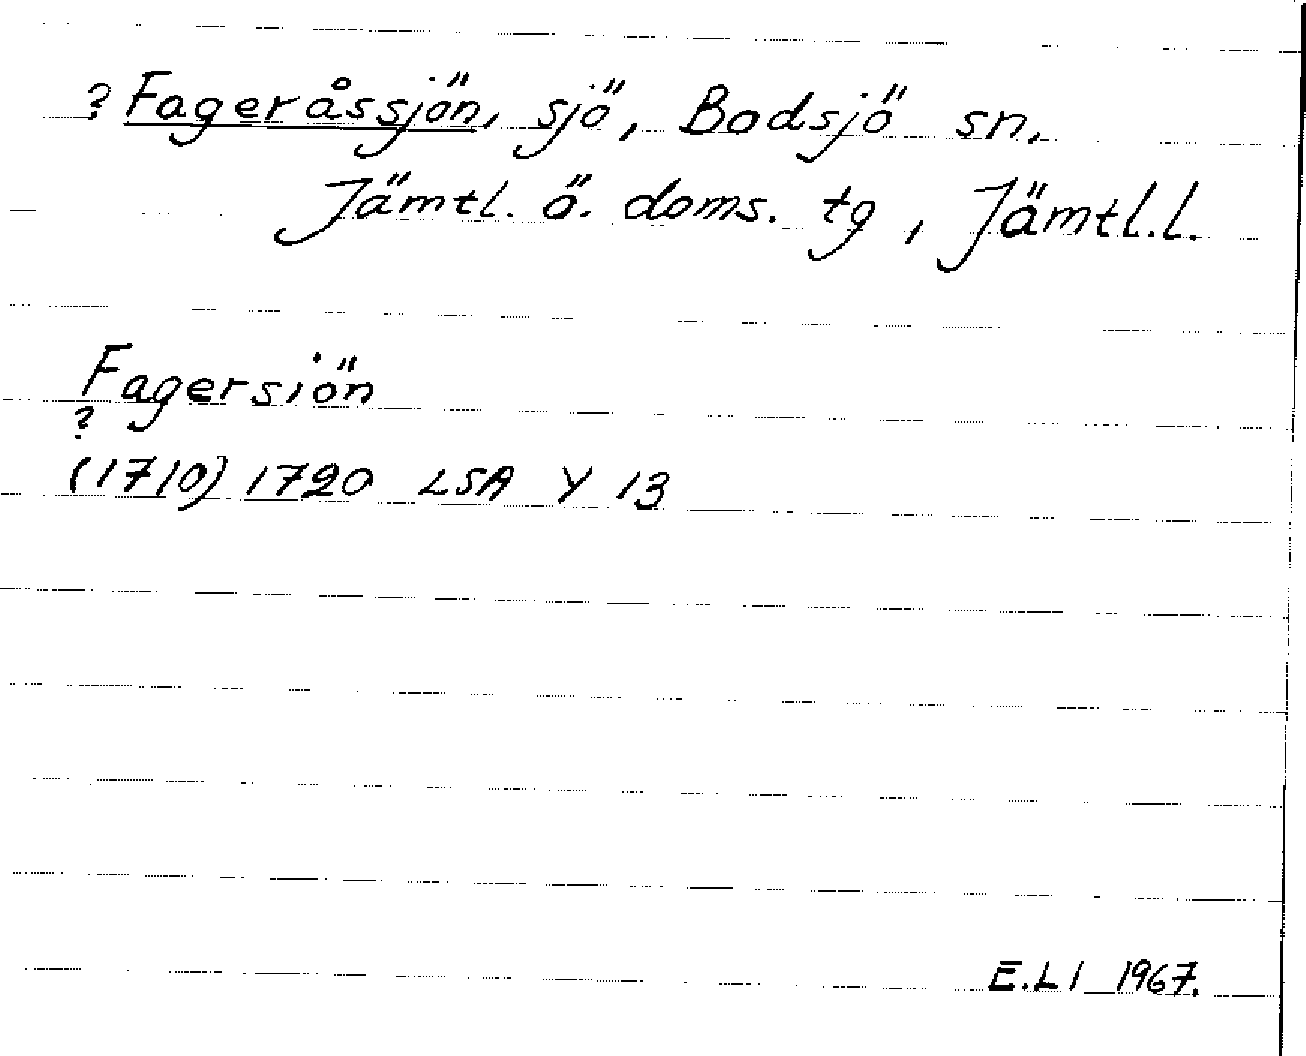 ? Fageråssjön, sjö, Bodsjö sn,
Jämtl. ö. doms. tg, Jämtl.l.
Fagersiön
?
(1710) 1720 LSA Y 13
E.L I 1967.